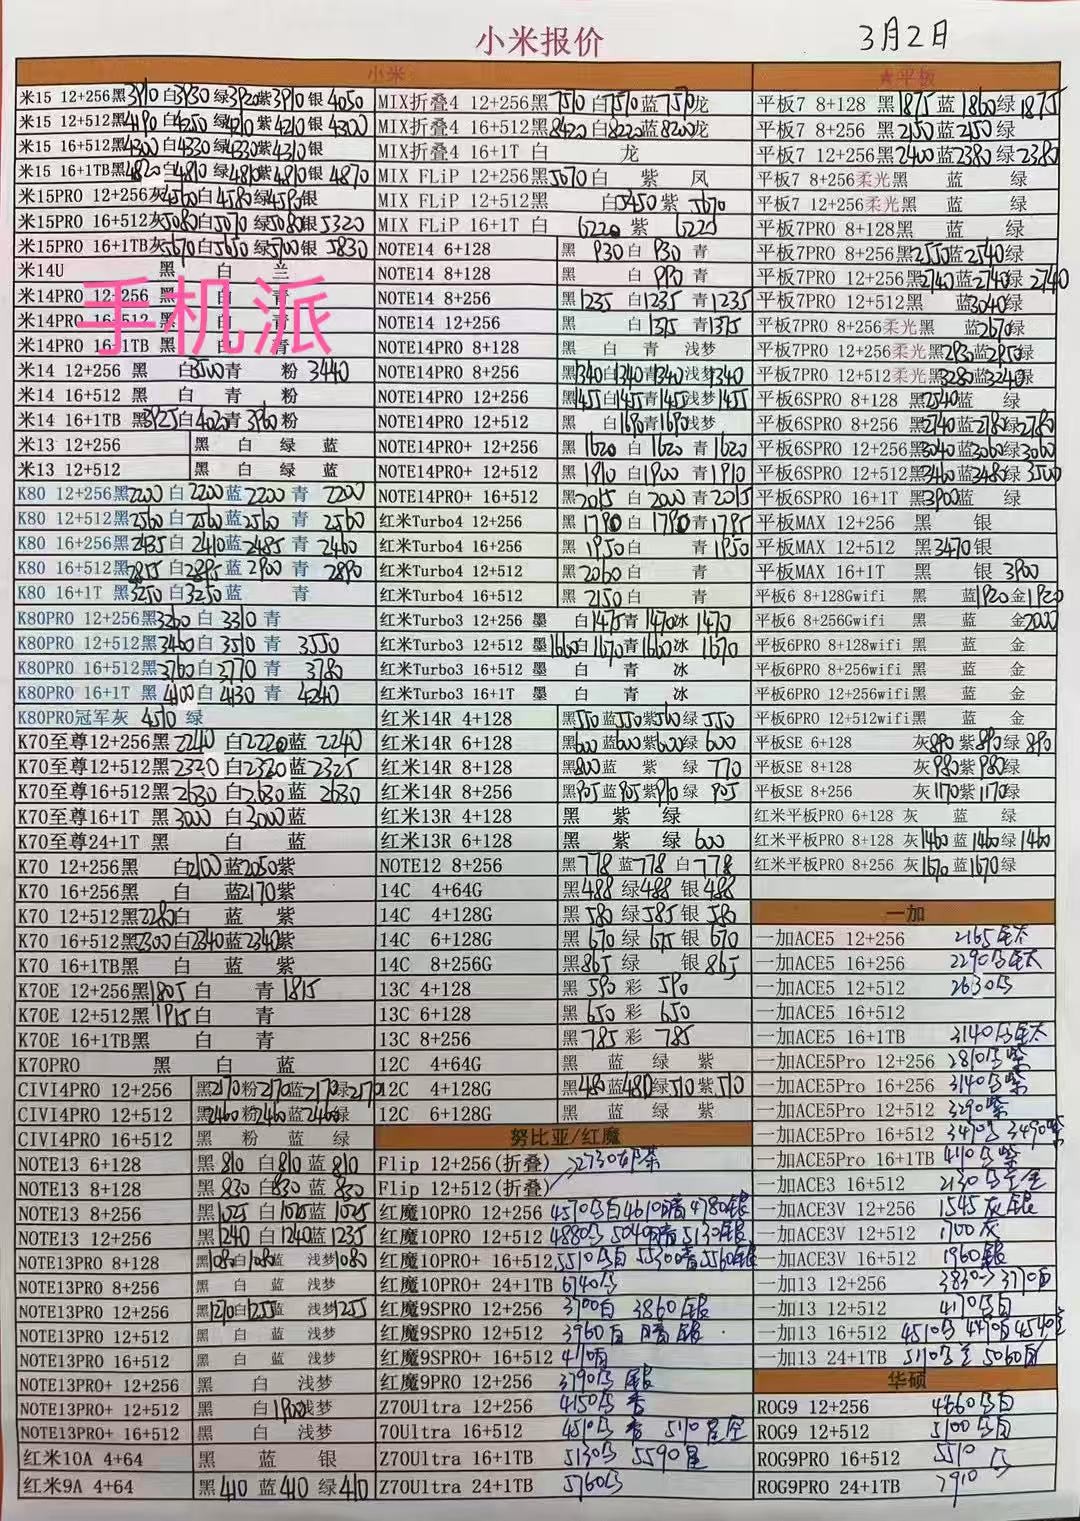 小米报价
3月2日
小米
米15 12+256黑3910白3930绿3920紫3910银4050
米15 12+512黑4190白4250绿4210紫4210银4300
米15 16+512黑4300白4330绿4330紫4310银
米15 16+1TB黑4820白4810绿4810紫4810银4870
米15PRO 12+256灰4560白4580绿4590银
米15PRO 16+512灰5080白5070绿5080银5320
米15PRO 16+1TB灰5670白5650绿5700银5830
米14U 黑 白 兰
米14PRO 12+256 黑 白 青
手机派
米14PRO 16+512 黑 白 青
米14PRO 16+1TB 黑 白 青
米14 12+256 黑 白3500青 粉 3440
米14 16+512 黑 白 青 粉
米14 16+1TB 黑3925白4020青3960粉
米13 12+256 黑 白 绿 蓝
米13 12+512 黑 白 绿 蓝
K80 12+256黑2200 白2200蓝2200 青 2200
K80 12+512黑2560 白2560蓝2560 青 2560
K80 16+256黑2435 白2410蓝2485 青2460
K80 16+512黑2855白2895蓝2900 青2890
K80 16+1T 黑3250白3250蓝 青
K80PRO 12+256黑3260白 3310 青
K80PRO 12+512黑3460白3510 青 3550
K80PRO 16+512黑3760白3770 青 3780
K80PRO 16+1T 黑 4100白4130 青 4240
K80PRO冠军灰 4510 绿
K70至尊12+256黑2240 白2220蓝 2240
K70至尊12+512黑2320 白2320蓝2325
K70至尊16+512黑2630 白2630蓝 2630
K70至尊16+1T 黑3000 白3000蓝
K70至尊24+1T 黑 白 蓝
K70 12+256黑 白2100蓝2050紫
K70 16+256黑 白 蓝2170紫
K70 12+512黑2280白 蓝 紫
K70 16+512黑2300白2340蓝2340紫
K70 16+1TB黑 白 蓝 紫
K70E 12+256黑1805白 青1815
K70E 12+512黑1915白 青
K70E 16+1TB黑 白 青
K70PRO 黑 白 蓝
CIVI4PRO 12+256 黑2170粉2170蓝2170绿2170
CIVI4PRO 12+512 黑2460粉2460蓝2460绿
CIVI4PRO 16+512 黑 粉 蓝 绿
NOTE13 6+128 黑810 白810蓝810
NOTE13 8+128 黑830 白830蓝830
NOTE13 8+256 黑1025白1025蓝1025
NOTE13 12+256 黑1240白1240蓝1235
NOTE13PRO 8+128 黑1080白1080蓝 浅梦1080
NOTE13PRO 8+256 黑 白 蓝 浅梦
NOTE13PRO 12+256 黑1270白1255蓝 浅梦1255
NOTE13PRO 12+512 黑 白 蓝 浅梦
NOTE13PRO 16+512 黑 白 蓝 浅梦
NOTE13PRO+ 12+256 黑 白 浅梦
NOTE13PRO+ 12+512 黑 白1900浅梦
NOTE13PRO+ 16+512 黑 白 浅梦
红米10A 4+64 黑 蓝 银
红米9A 4+64 黑410 蓝410 绿410
MIX折叠4 12+256黑7510 白7510蓝7570龙
MIX折叠4 16+512黑8420白8220蓝8200龙
MIX折叠4 16+1T 白 龙
MIX FLiP 12+256黑5670白 紫 凤
MIX FLiP 12+512黑 白5450紫 5670
MIX FLiP 16+1T 白 6220 紫 6220
NOTE14 6+128 黑 930白 930 青
NOTE14 8+128 黑 白 990 青
NOTE14 8+256 黑1235 白1235 青1235
NOTE14 12+256 黑 白1375 青1375
NOTE14PRO 8+128 黑 白 青 浅梦
NOTE14PRO 8+256 黑1340白1340青1340浅梦1340
NOTE14PRO 12+256 黑1455白1455青1455浅梦1455
NOTE14PRO 12+512 黑 白1690青1690浅梦
NOTE14PRO+ 12+256 黑 1620 白 1620 青 1620
NOTE14PRO+ 12+512 黑 1910 白1900 青 1910
NOTE14PRO+ 16+512 黑2015 白 2000 青2015
红米Turbo4 12+256 黑 1790白 1790青1795
红米Turbo4 16+256 黑 1950白 青1950
红米Turbo4 12+512 黑 2060白 青
红米Turbo4 16+512 黑 2150白 青
红米Turbo3 12+256 墨 白1475青1470冰 1470
红米Turbo3 12+512 墨1660白1670青1660冰 1670
红米Turbo3 16+512 墨 白 青 冰
红米Turbo3 16+1T 墨 白 青 冰
红米14R 4+128 黑550蓝550紫560绿 550
红米14R 6+128 黑600蓝600紫600绿 600
红米14R 8+128 黑800蓝 紫 绿 770
红米14R 8+256 黑905蓝905紫910绿 905
红米13R 4+128 黑 紫 绿
红米13R 6+128 黑 紫 绿 600
NOTE12 8+256 黑778 蓝778 白778
14C 4+64G 黑488 绿488 银488
14C 4+128G 黑 580 绿585 银 580
14C 6+128G 黑 670 绿 675 银 670
14C 8+256G 黑865 绿 银865
13C 4+128 黑 590 彩 590
13C 6+128 黑 650 彩 650
13C 8+256 黑785 彩 785
12C 4+64G 黑 蓝 绿 紫
12C 4+128G 黑480蓝480绿510紫510
12C 6+128G 黑 蓝 绿 紫
努比亚/红魔
Flip 12+256(折叠) 2730
Flip 12+512(折叠)
红魔10PRO 12+256 4570马白4610暗4780银
红魔10PRO 12+512 4880马 5040暗5130银
红魔10PRO+ 16+512 5510马白 5530暗5560银
红魔10PRO+ 24+1TB 6740马
红魔9SPRO 12+256 3700白 3860银
红魔9SPRO 12+512 3960白 暗 银
红魔9SPRO+ 16+512 4710白
红魔9PRO 12+256 3790马 银
Z70Ultra 12+256 4150马 香
70Ultra 16+512 4510马 香 5110星空
Z70Ultra 16+1TB 5130马 5590星
Z70Ultra 24+1TB 5760马
★平板
平板7 8+128 黑1875 蓝1860绿1875
平板7 8+256 黑2150蓝2150绿
平板7 12+256黑2400蓝2380绿2380
平板7 8+256柔光黑 蓝 绿
平板7 12+256柔光黑 蓝 绿
平板7PRO 8+128黑 蓝 绿
平板7PRO 8+256黑2550蓝2540绿
平板7PRO 12+256黑2740蓝2740绿2740
平板7PRO 12+512黑 蓝3040绿
平板7PRO 8+256柔光黑 蓝2670绿
平板7PRO 12+256柔光黑2930蓝2950绿
平板7PRO 12+512柔光黑3280蓝3240绿
平板6SPRO 8+128 黑2540蓝 绿
平板6SPRO 8+256 黑2740蓝2780绿2780
平板6SPRO 12+256黑3040蓝3060绿3060
平板6SPRO 12+512黑3460蓝3480绿3500
平板6SPRO 16+1T 黑3900蓝 绿
平板MAX 12+256 黑 银
平板MAX 12+512 黑3470银
平板MAX 16+1T 黑 银 3900
平板6 8+128Gwifi 黑 蓝1920金1920
平板6 8+256Gwifi 黑 蓝 金2000
平板6PRO 8+128wifi 黑 蓝 金
平板6PRO 8+256wifi 黑 蓝 金
平板6PRO 12+256wifi黑 蓝 金
平板6PRO 12+512wifi黑 蓝 金
平板SE 6+128 灰890紫890绿890
平板SE 8+128 灰980紫980绿
平板SE 8+256 灰1170紫1170绿
红米平板PRO 6+128 灰 蓝 绿
红米平板PRO 8+128 灰1460蓝1460绿1460
红米平板PRO 8+256 灰1670蓝1670绿
一加
一加ACE5 12+256 2165钛
一加ACE5 16+256 2290马钛
一加ACE5 12+512 2630马
一加ACE5 16+512
一加ACE5 16+1TB 3140马钛
一加ACE5Pro 12+256 2810马紫
一加ACE5Pro 16+256 3140马紫
一加ACE5Pro 12+512 3290紫
一加ACE5Pro 16+512 3470马 3490紫
一加ACE5Pro 16+1TB 4110马紫
一加ACE3 16+512 2130马 金
一加ACE3V 12+256 1545灰银
一加ACE3V 12+512 1700灰
一加ACE3V 16+512 1960银
一加13 12+256 3830马 3770白
一加13 12+512 4170马白
一加13 16+512 4510马 4470白4540蓝
一加13 24+1TB 5110马 5060白
华硕
ROG9 12+256 4660马白
ROG9 12+512 5100马白
ROG9PRO 16+512 5510马
ROG9PRO 24+1TB 7910